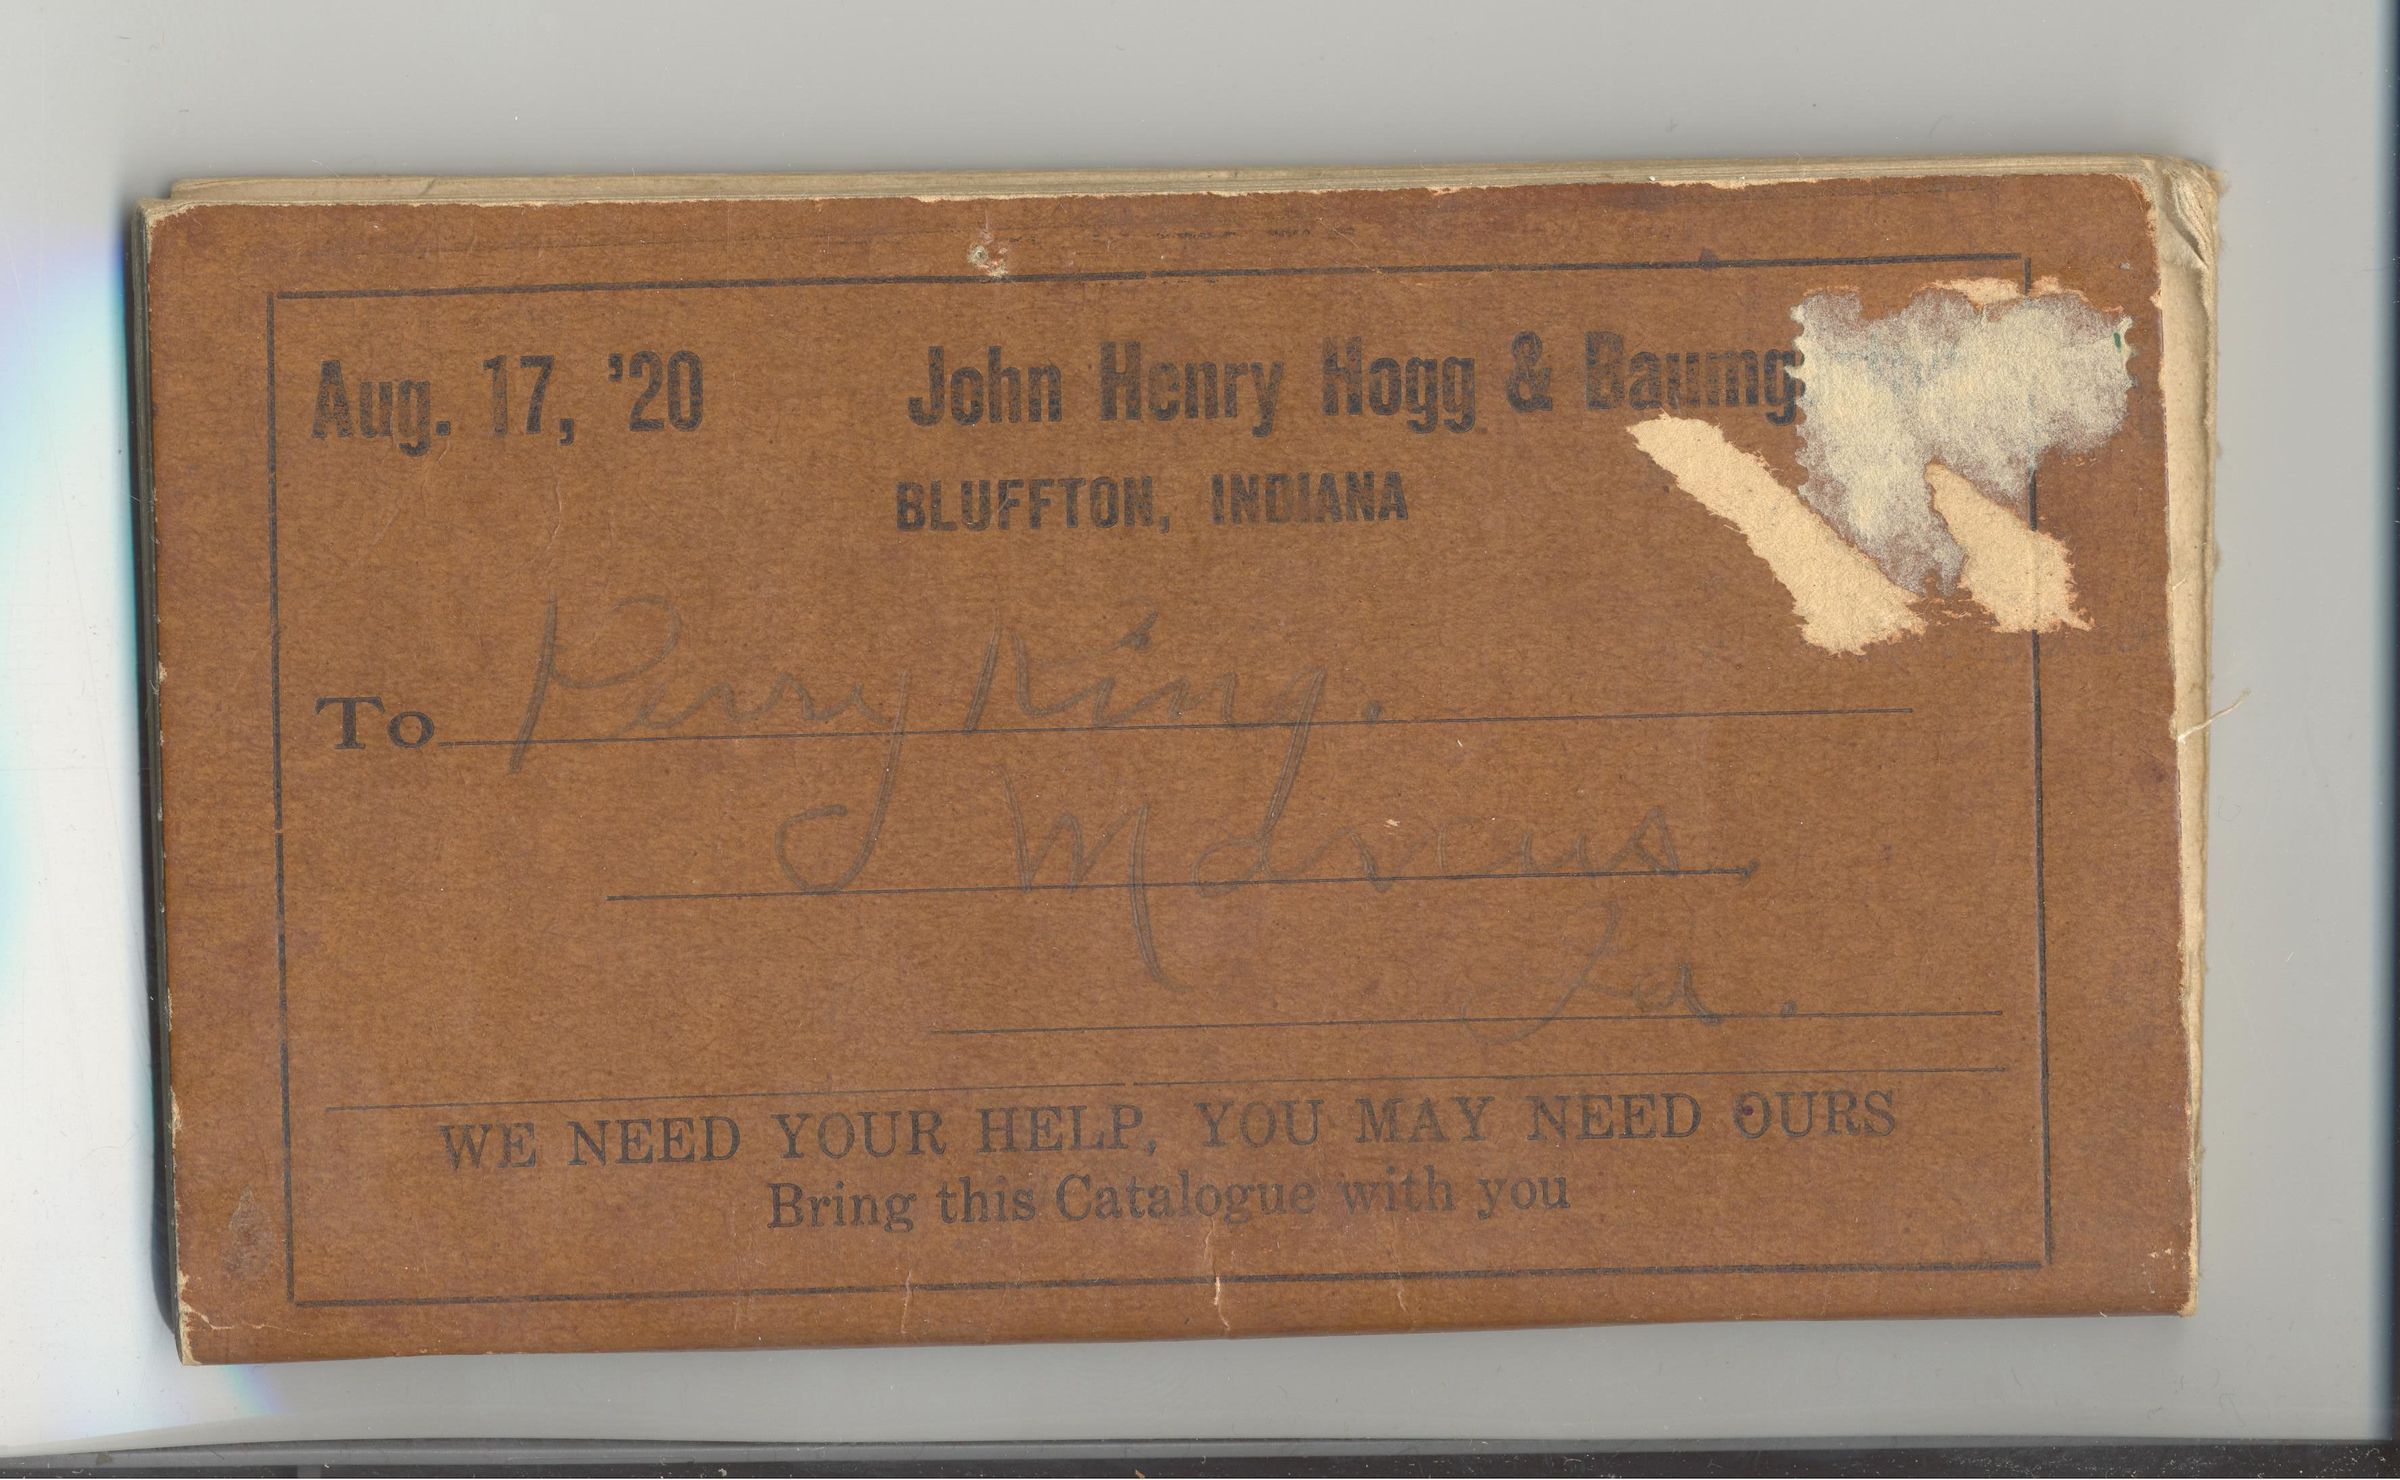 Aug. 17, '20
John Henry Hogg & Baumg
BLUFFTON, INDIANA
To Perry King.
Marcus,
Ia.
WE NEED YOUR HELP, YOU MAY NEED OURS
Bring this Catalogue with you